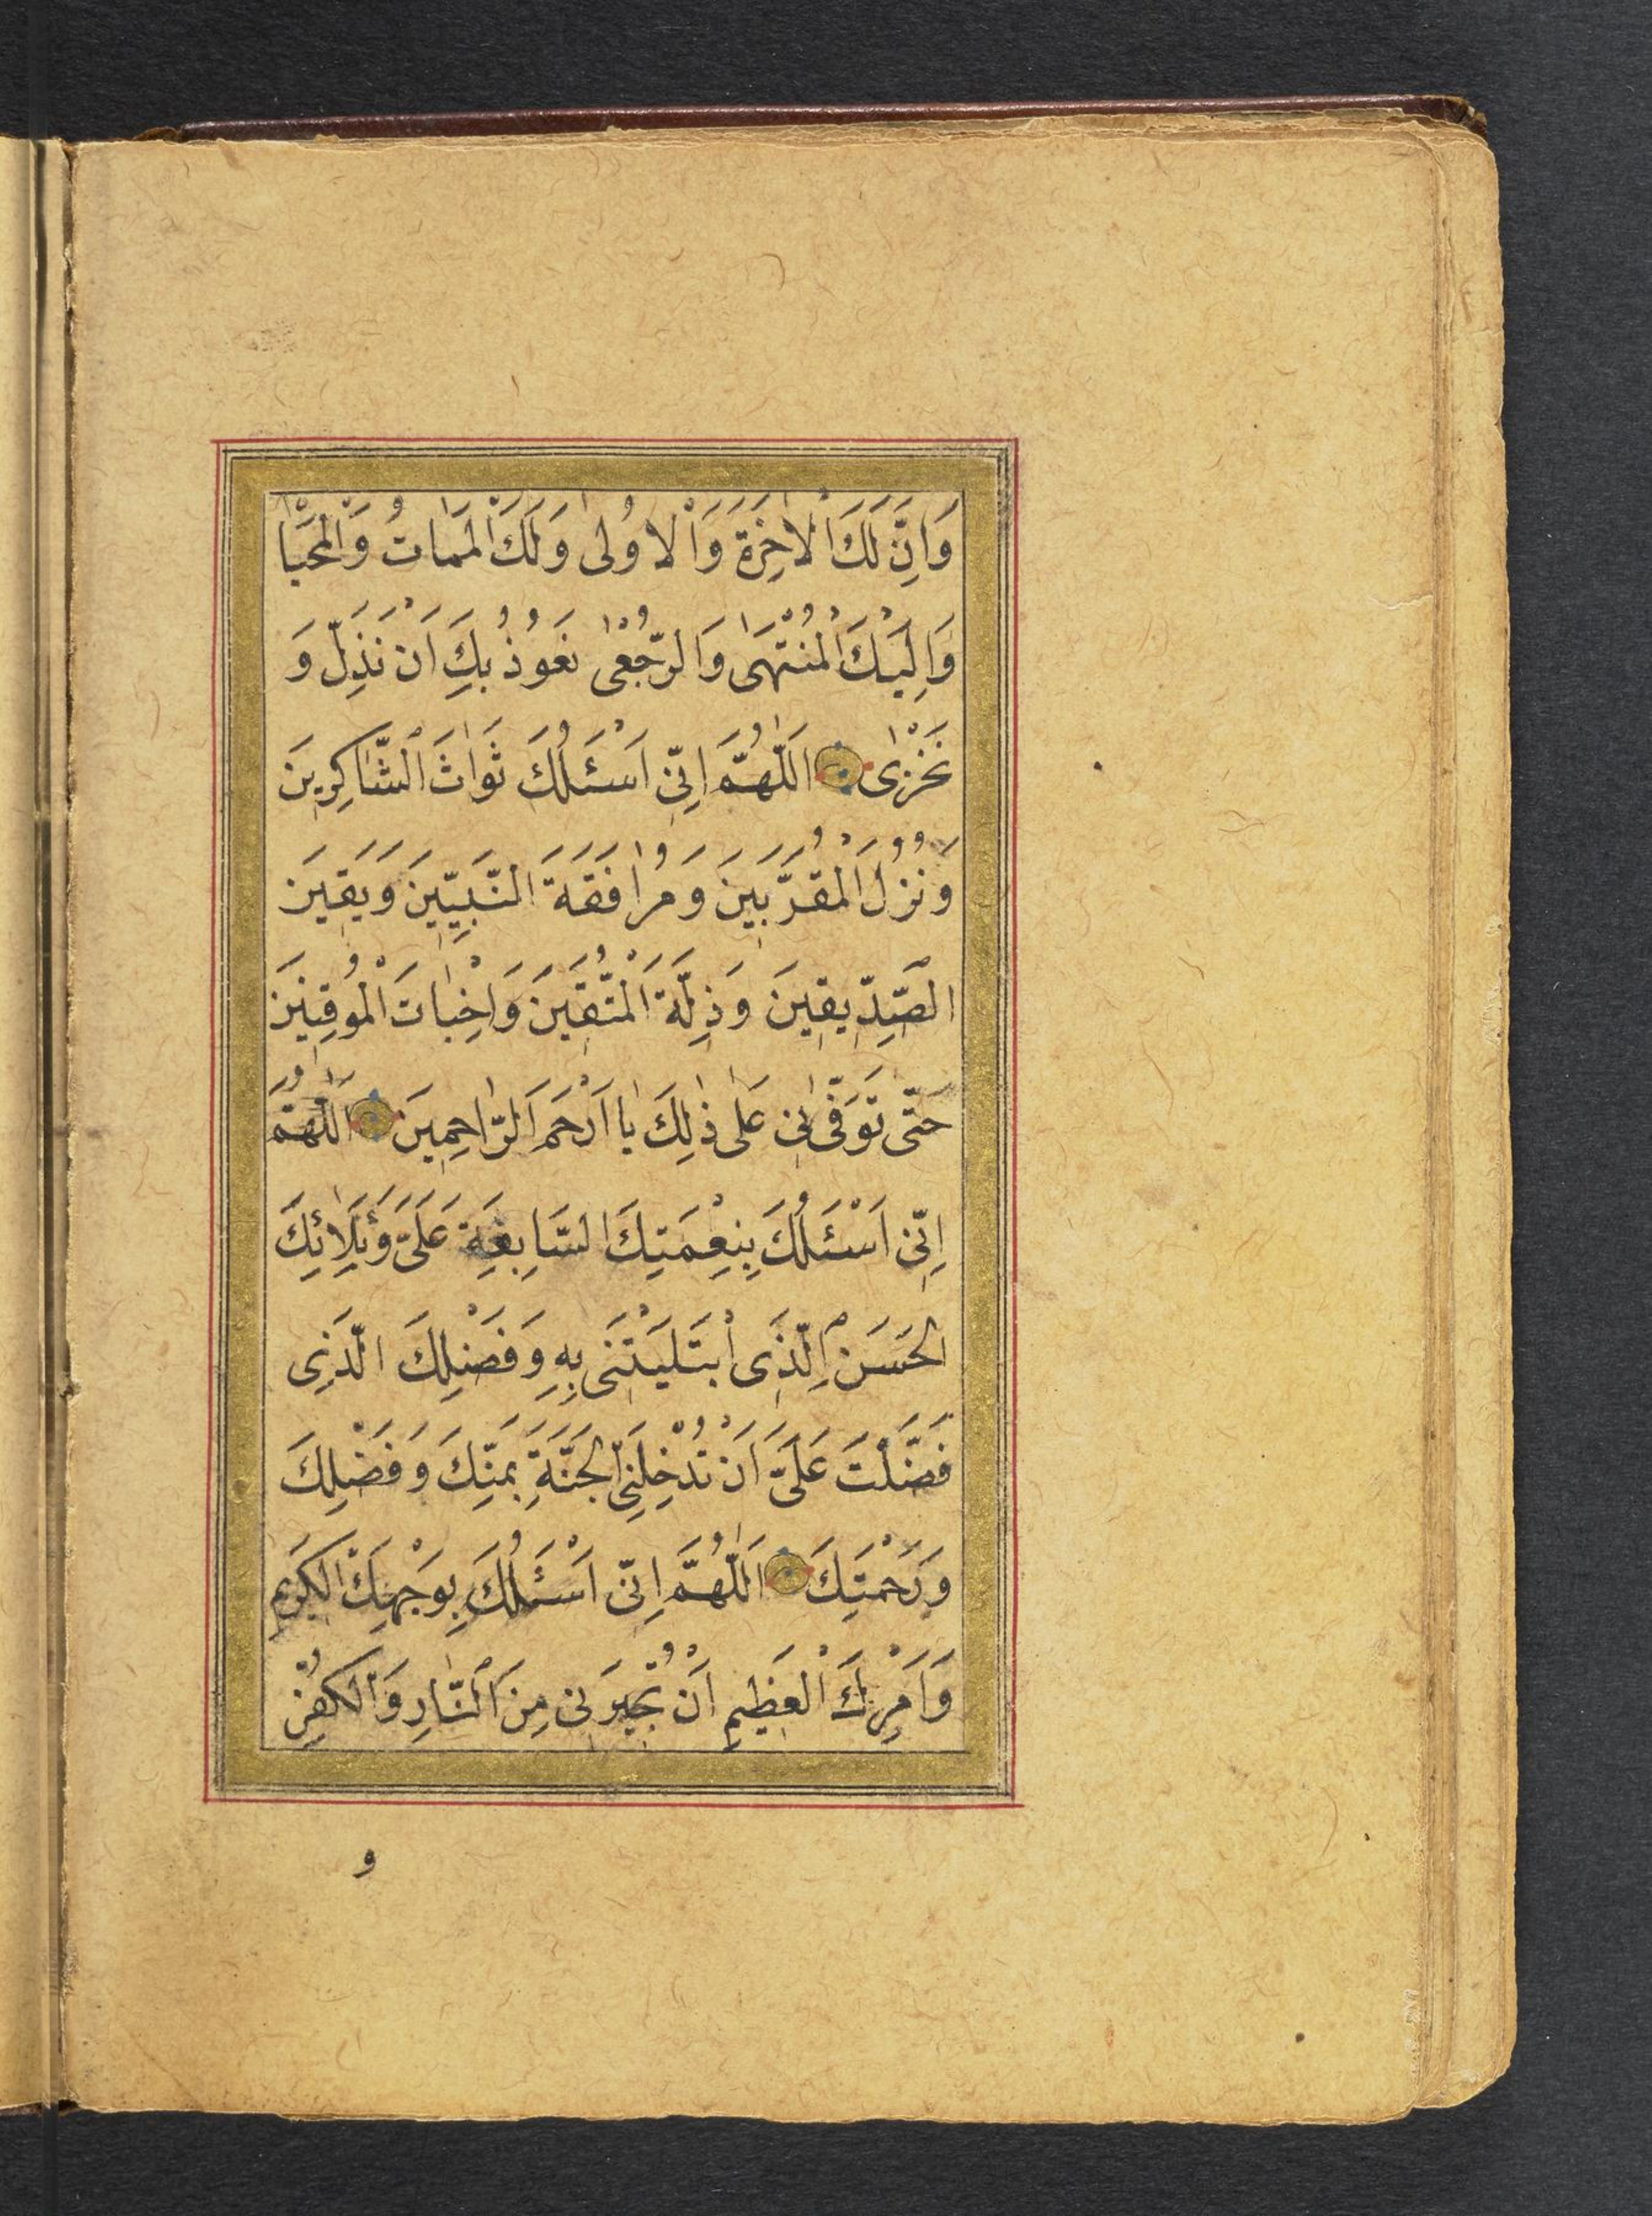 وَاِنَّ لَكَ الْاٰخِرَةَ وَالْاُولٰى وَلَكَ الْمَمَاتُ وَالْمَحْيَا
وَاِلَيْكَ الْمُنْتَهٰى وَالرُّجْعٰى نَعُوذُ بِكَ اَنْ نَذِلَّ وَ
نَخْزٰى اَللّٰهُمَّ اِنِّى اَسْئَلُكَ ثَوَاثَ الشَّاكِرِينَ
وَنُزُلَ الْمُقَرَّبِينَ وَمُرَافَقَةَ النَّبِيِّينَ وَيَقِينَ
الصِّدِّيقِينَ وَذِلَّةَ الْمُتَّقِينَ وَاِخْبَاتَ الْمُوقِنِينَ
حَتّٰى تَوَفّٰىنِى عَلٰى ذٰلِكَ يَا اَرْحَمَ الرَّاحِمِينَ اَللّٰهُمَّ
اِنِّى اَسْئَلُكَ بِنِعْمَتِكَ السَّابِغَةِ عَلَىَّ وَبَلَائِكَ
الْحَسَنِ الَّذِى ابْتَلَيْتَنِى بِهِ وَفَضْلِكَ الَّذِى
فَضَّلْتَ عَلَىَّ اَنْ تُدْخِلَنِى الْجَنَّةَ بِمَنِّكَ وَفَضْلِكَ
وَرَحْمَتِكَ اَللّٰهُمَّ اِنِّى اَسْئَلُكَ بِوَجْهِكَ الْكَرِيمِ
وَاَمْرِكَ الْعَظِيمِ اَنْ تُجِيرَنِى مِنَ النَّارِ وَالْكُفْرِ
و